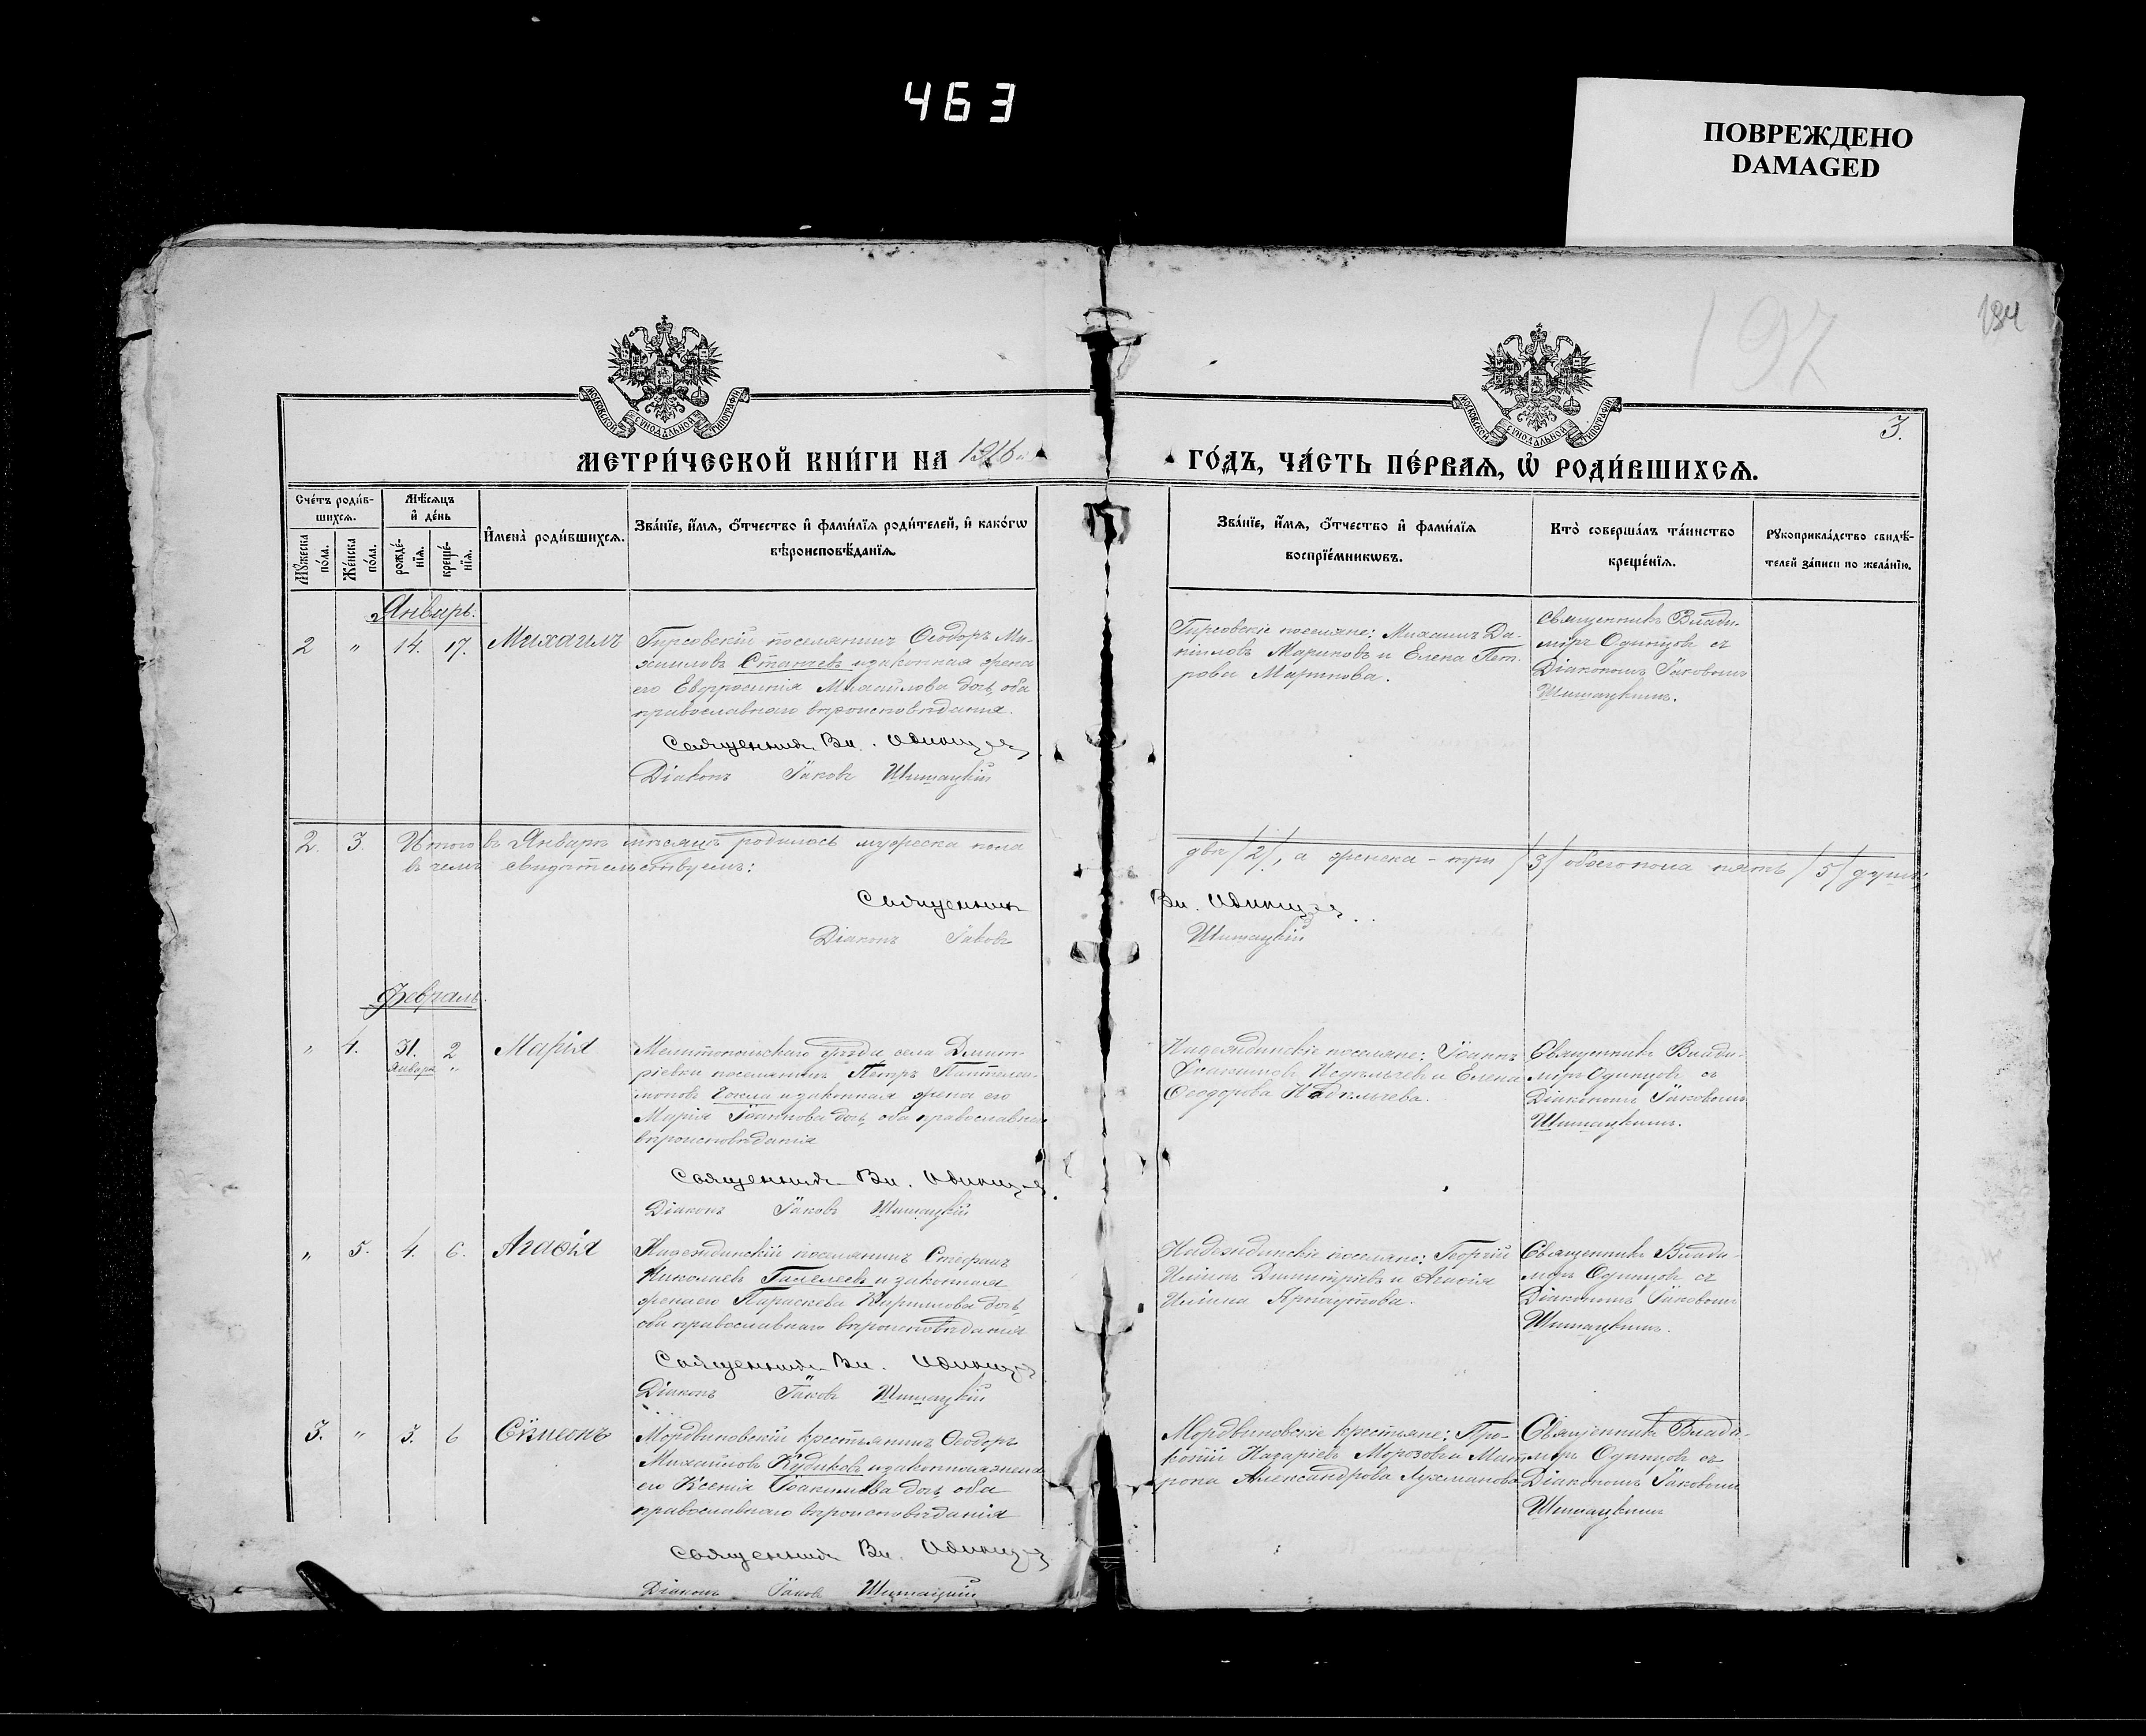 463
ПОВРЕЖДЕНО
DAMAGED
197
184
3.
МОСКОВСКОЙ СУНОДАЛЬНОЙ ТИПОГРАФІИ
МОСКОВСКОЙ СУНОДАЛЬНОЙ ТИПОГРАФІИ
МЕТРИ́ЧЕСКОЙ КНИ́ГИ НА 1916
ГО́ДЪ, ЧА́СТЬ ПЕ́РВАЯ, Ѡ҆ РОДИ́ВШИХСЯ.
Сче́тъ роди́в-
шихся.
Мѣ́сяцъ
и҆ де́нь
Мꙋ́жеска
по́ла.
Же́нска
по́ла.
рожде́-
нїя.
креще́-
нїя.
И҆мена̀ роди́вшихся.
Зва́нїе, и҆́мя, ѻ҆́тчество и҆ фами́лїя роди́телей, и҆ како́гѡ
вѣроисповѣ́данїя.
Зва́нїе, и҆́мя, ѻ҆́тчество и҆ фами́лїя
воспрїе́мникѡвъ.
Кто̀ соверша́лъ та́инство
креще́нїя.
Рꙋкоприкла́дство свидѣ́-
телей за́писи по жела́нїю.
Январь.
2 " 14. 17. Михаилъ
Гирсовскій поселянинъ Ѳеодоръ Ми-
хаиловъ Станчевъ и законная жена
его Евфросинія Михаилова дочь, оба
православнаго вѣроисповѣданія.
Священникъ Вл. Одинцовъ
Діаконъ Іаковъ Шишацкій
Гирсовскіе поселяне: Михаилъ Да-
ніиловъ Мариновъ и Елена Пет-
рова Маринова.
Священникъ Влади-
міръ Одинцовъ съ
Діакономъ Іаковомъ
Шишацкимъ.
2. 3. Итого въ Январѣ мѣсяцѣ родилось мужеска пола
два /2/, а женска - три /3/ обоего пола пять /5/ душъ,
въ чемъ свидѣтельствуемъ:
Священникъ Вл. Одинцовъ
Діаконъ Іаковъ Шишацкій
Февраль.
" 4. 31. Января 2 " Марія
Мелитопольскаго уѣзда села Дмит-
ріевки поселянинъ Петръ Пантелеи-
моновъ и законная жена его
Марія Іоаннова дочь, оба православнаго
вѣроисповѣданія
Священникъ Вл. Одинцовъ.
Діаконъ Іаковъ Шишацкій
Надеждинскіе поселяне: Іоаннъ
Іоакимовъ Недѣльчевъ и Елена
Ѳеодорова Недѣльчева.
Священникъ Влади-
міръ Одинцовъ съ
Діакономъ Іаковомъ
Шишацкимъ.
" 5. 4. 6. Агаѳія
Надеждинскій поселянинъ Стефанъ
Николаевъ и законная
жена его Параскева Кириллова дочь,
оба православнаго вѣроисповѣданія
Священникъ Вл. Одинцовъ
Діаконъ Іаковъ Шишацкій
Надеждинскіе поселяне: Георгій
Ильинъ Димитріевъ и Агаѳія
Ильина Арнаутова.
Священникъ Влади-
міръ Одинцовъ съ
Діакономъ Іаковомъ
Шишацкимъ.
3. " 3. 6 Сѵмеонъ
Мордвиновскій крестьянинъ Ѳеодоръ
Михаиловъ Кудиковъ и законная жена
его Ксенія Іоакимова дочь, оба
православнаго вѣроисповѣданія
Священникъ Вл. Одинцовъ
Діаконъ Іаковъ Шишацкій
Мордвиновскіе крестьяне: Про-
копій Назаріевъ Морозовъ и Мат-
рона Александрова Лухманова
Священникъ Влади-
міръ Одинцовъ съ
Діакономъ Іаковомъ
Шишацкимъ